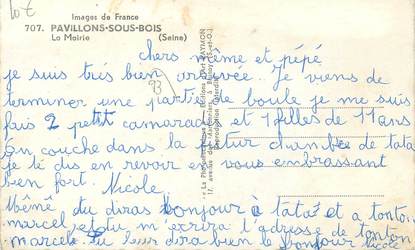 Images de France
707. PAVILLONS-SOUS-BOIS
La Mairie (Seine)
chers mémé et pépé
je suis très bien arrivée. Je viens de
terminer une partie de boule je me suis
fais 2 petit camarade et 1 filles de 11 ans
on couche dans la futur chambre de tata
je te dis en revoir en vous embrassant
bien fort. Nicole
Mémé tu diras bonjour à tata et a tonton
marcel tu m'ecrira l'adresse de tonton
marcel. Tu leur dira bien le bonjour Nicole